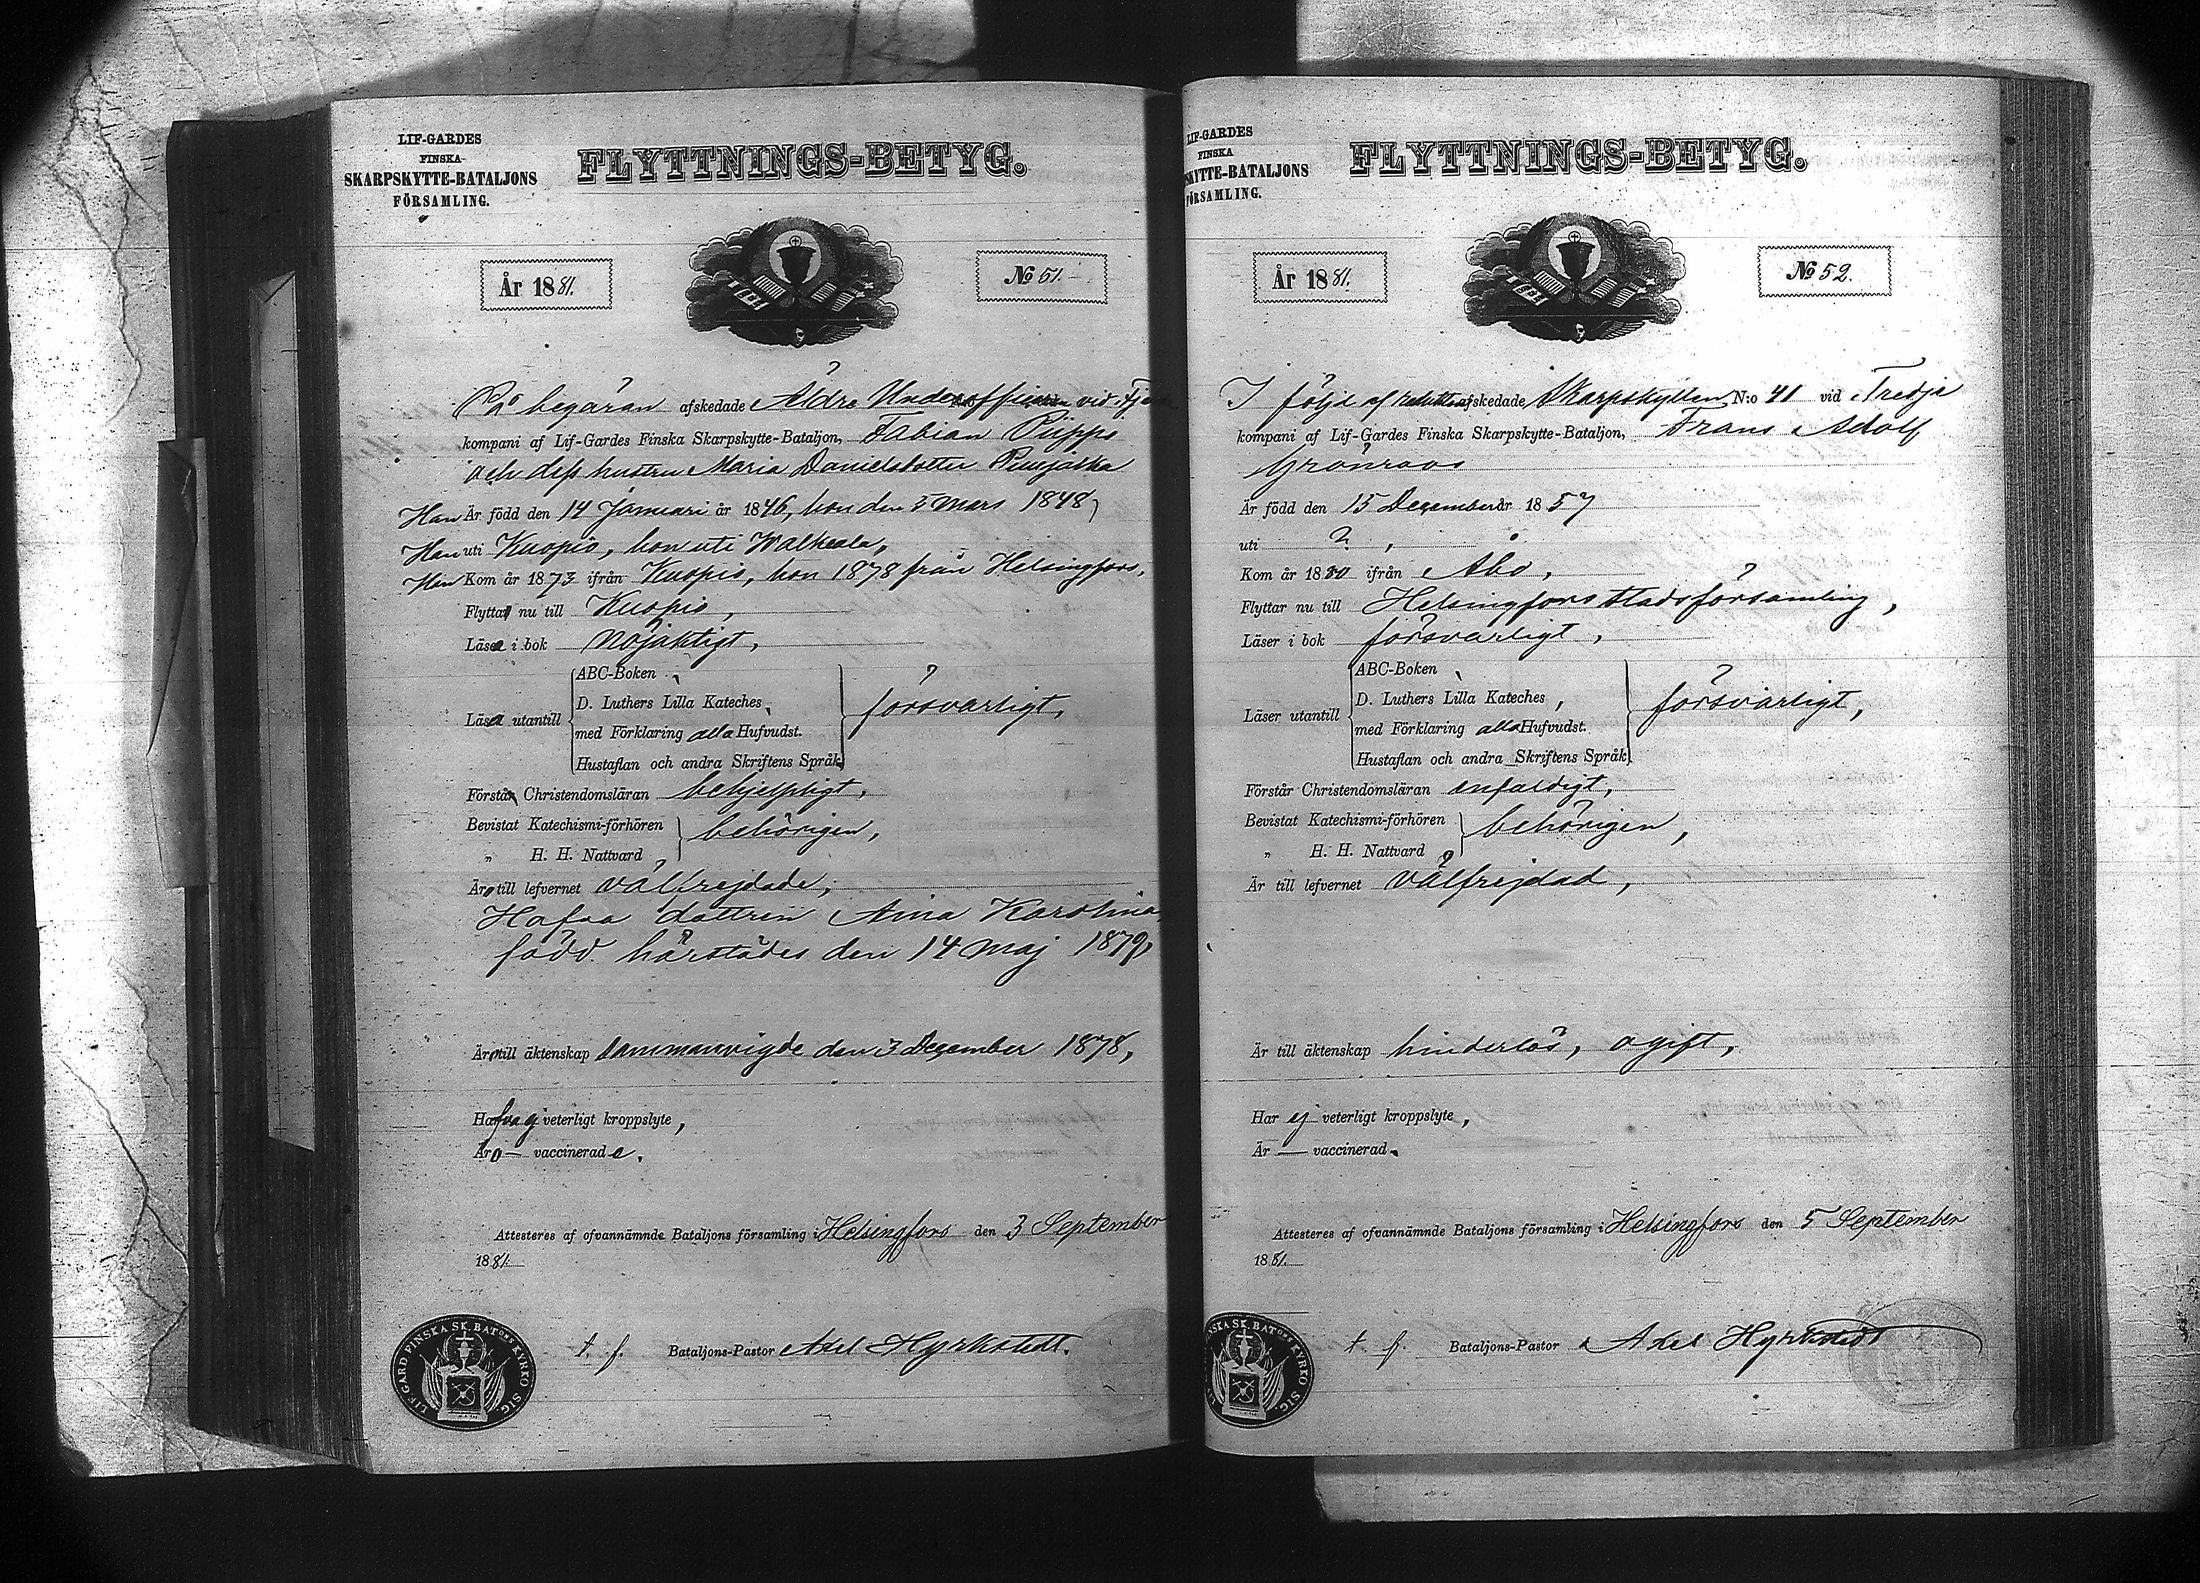 LIF-GARDES
FINSKA
SKARPSKYTTE-BATALJONS
FÖRSAMLING.
FLYTTNINGS-BETYG.
År 1881.
№ 51.
På begäran afskedade Äldre Underofficeren vid
kompani af Lif-Gardes Finska Skarpskytte-Bataljon, Fabian Piippo
och dess hustru Maria Danielsdotter
Han Är född den 14 Januari år 1846, hon den 3 Mars 1848,
Han uti Kuopio, hon uti Walkeala,
Han Kom år 1873 ifrån Kuopio, hon 1878 från Helsingfors,
Flytta nu till Kuopio,
Läsa i bok nöjaktigt,
Läsa utantill
ABC-Boken,
D. Luthers Lilla Kateches,
med Förklaring alla Hufvudst.
Hustaflan och andra Skriftens Språk
försvarligt,
Förstå Christendomsläran behjelpligt,
Bevistat Katechismi-förhören
„ H. H. Nattvard
behörigen,
Äro till lefvernet välfrejdade,
Hafva dottren Aina Karolina,
född härstädes den 14 Maj 1879,
Äro till äktenskap sammanvigde den 3 December 1878,
Hafva ej veterligt kroppslyte,
Äro — vaccinerade.
Attesteres af ofvannämnde Bataljons församling i Helsingfors den 3 September
1881.
t. f. Bataljons-Pastor Axel Hyrkstedt.
LIF.GARD FINSKA SK.BATONS KYRKO SIG.
LIF-GARDES
FINSKA
SKYTTE-BATALJONS
FÖRSAMLING.
FLYTTNINGS-BETYG.
År 1881.
№ 52.
I följd af afskedade Skarpskytten N:o 41 vid Tredje
kompani af Lif-Gardes Finska Skarpskytte-Bataljon, Frans Adolf
Grönroos
Är född den 15 December år 1857
uti ?,
Kom år 1880 ifrån Åbo,
Flyttar nu till Helsingfors Stadsförsamling,
Läser i bok försvarligt,
Läser utantill
ABC-Boken,
D. Luthers Lilla Kateches,
med Förklaring alla Hufvudst.
Hustaflan och andra Skriftens Språk
försvarligt,
Förstår Christendomsläran enfaldigt,
Bevistat Katechismi-förhören
„ H. H. Nattvard
behörigen,
Är till lefvernet välfrejdad,
Är till äktenskap hinderlös, ogift,
Har ej veterligt kroppslyte,
Är — vaccinerad.
Attesteres af ofvannämnde Bataljons församling i Helsingfors den 5 September
1881.
t. f. Bataljons-Pastor Axel Hyrkstedt
NSKA SK.BATONS KYRKO SIG.